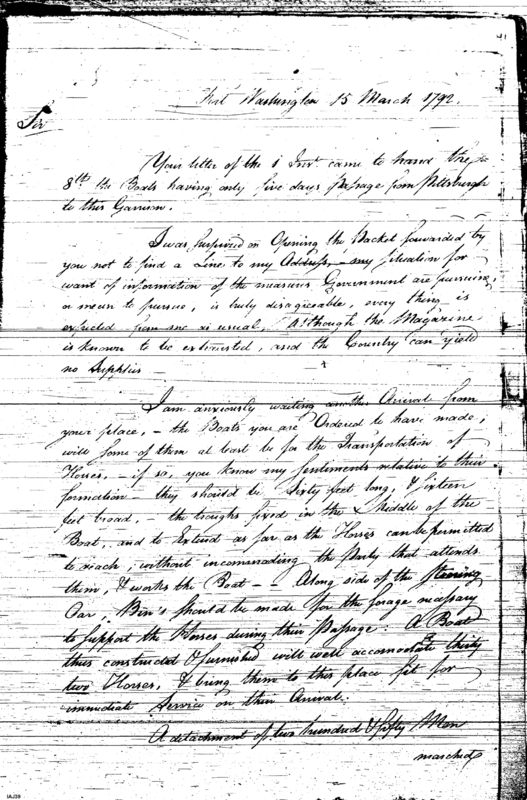 Fort Washington 15 March 1792.
Sir
Your letter of the 1 Inst. came to hand the
8th the Boats having only five days Passage from Pittsburgh
to this Garrison.
I was Surprised on Opening the Packet forwarded by
you not to find a Line to my Address, - my situation for
want of information of the measures Government are pursuing,
or mean to pursue, is truly disagreeable, every thing is
expected from me as usual, Although the Magazine
is known to be exhausted, and the Country can yield
no Supplies -
I am anxiously waiting another Arrival from
your place, - the Boats you are Ordered to have made,
will some of them at least be for the Transportation of
Horses, - if so, you know my Sentiments relative to their
formation - they should be Sixty feet long, & fifteen
feet broad, - the troughs fixed in the Middle of the
Boat, and to Extend as far as the Horses can be permitted
to reach, without incommoding the Party that attends
them, & works the Boat - - Along side of the Steering
Oar, Bin's should be made for the forage necessary
to support the Horses during their Passage: A Boat
thus constructed & furnished will well accomodate thirty
two Horses, & bring them to this place fit for
immediate Service on their Arrival.
A detachment of two hundred & fifty Men
marched
IAJ39